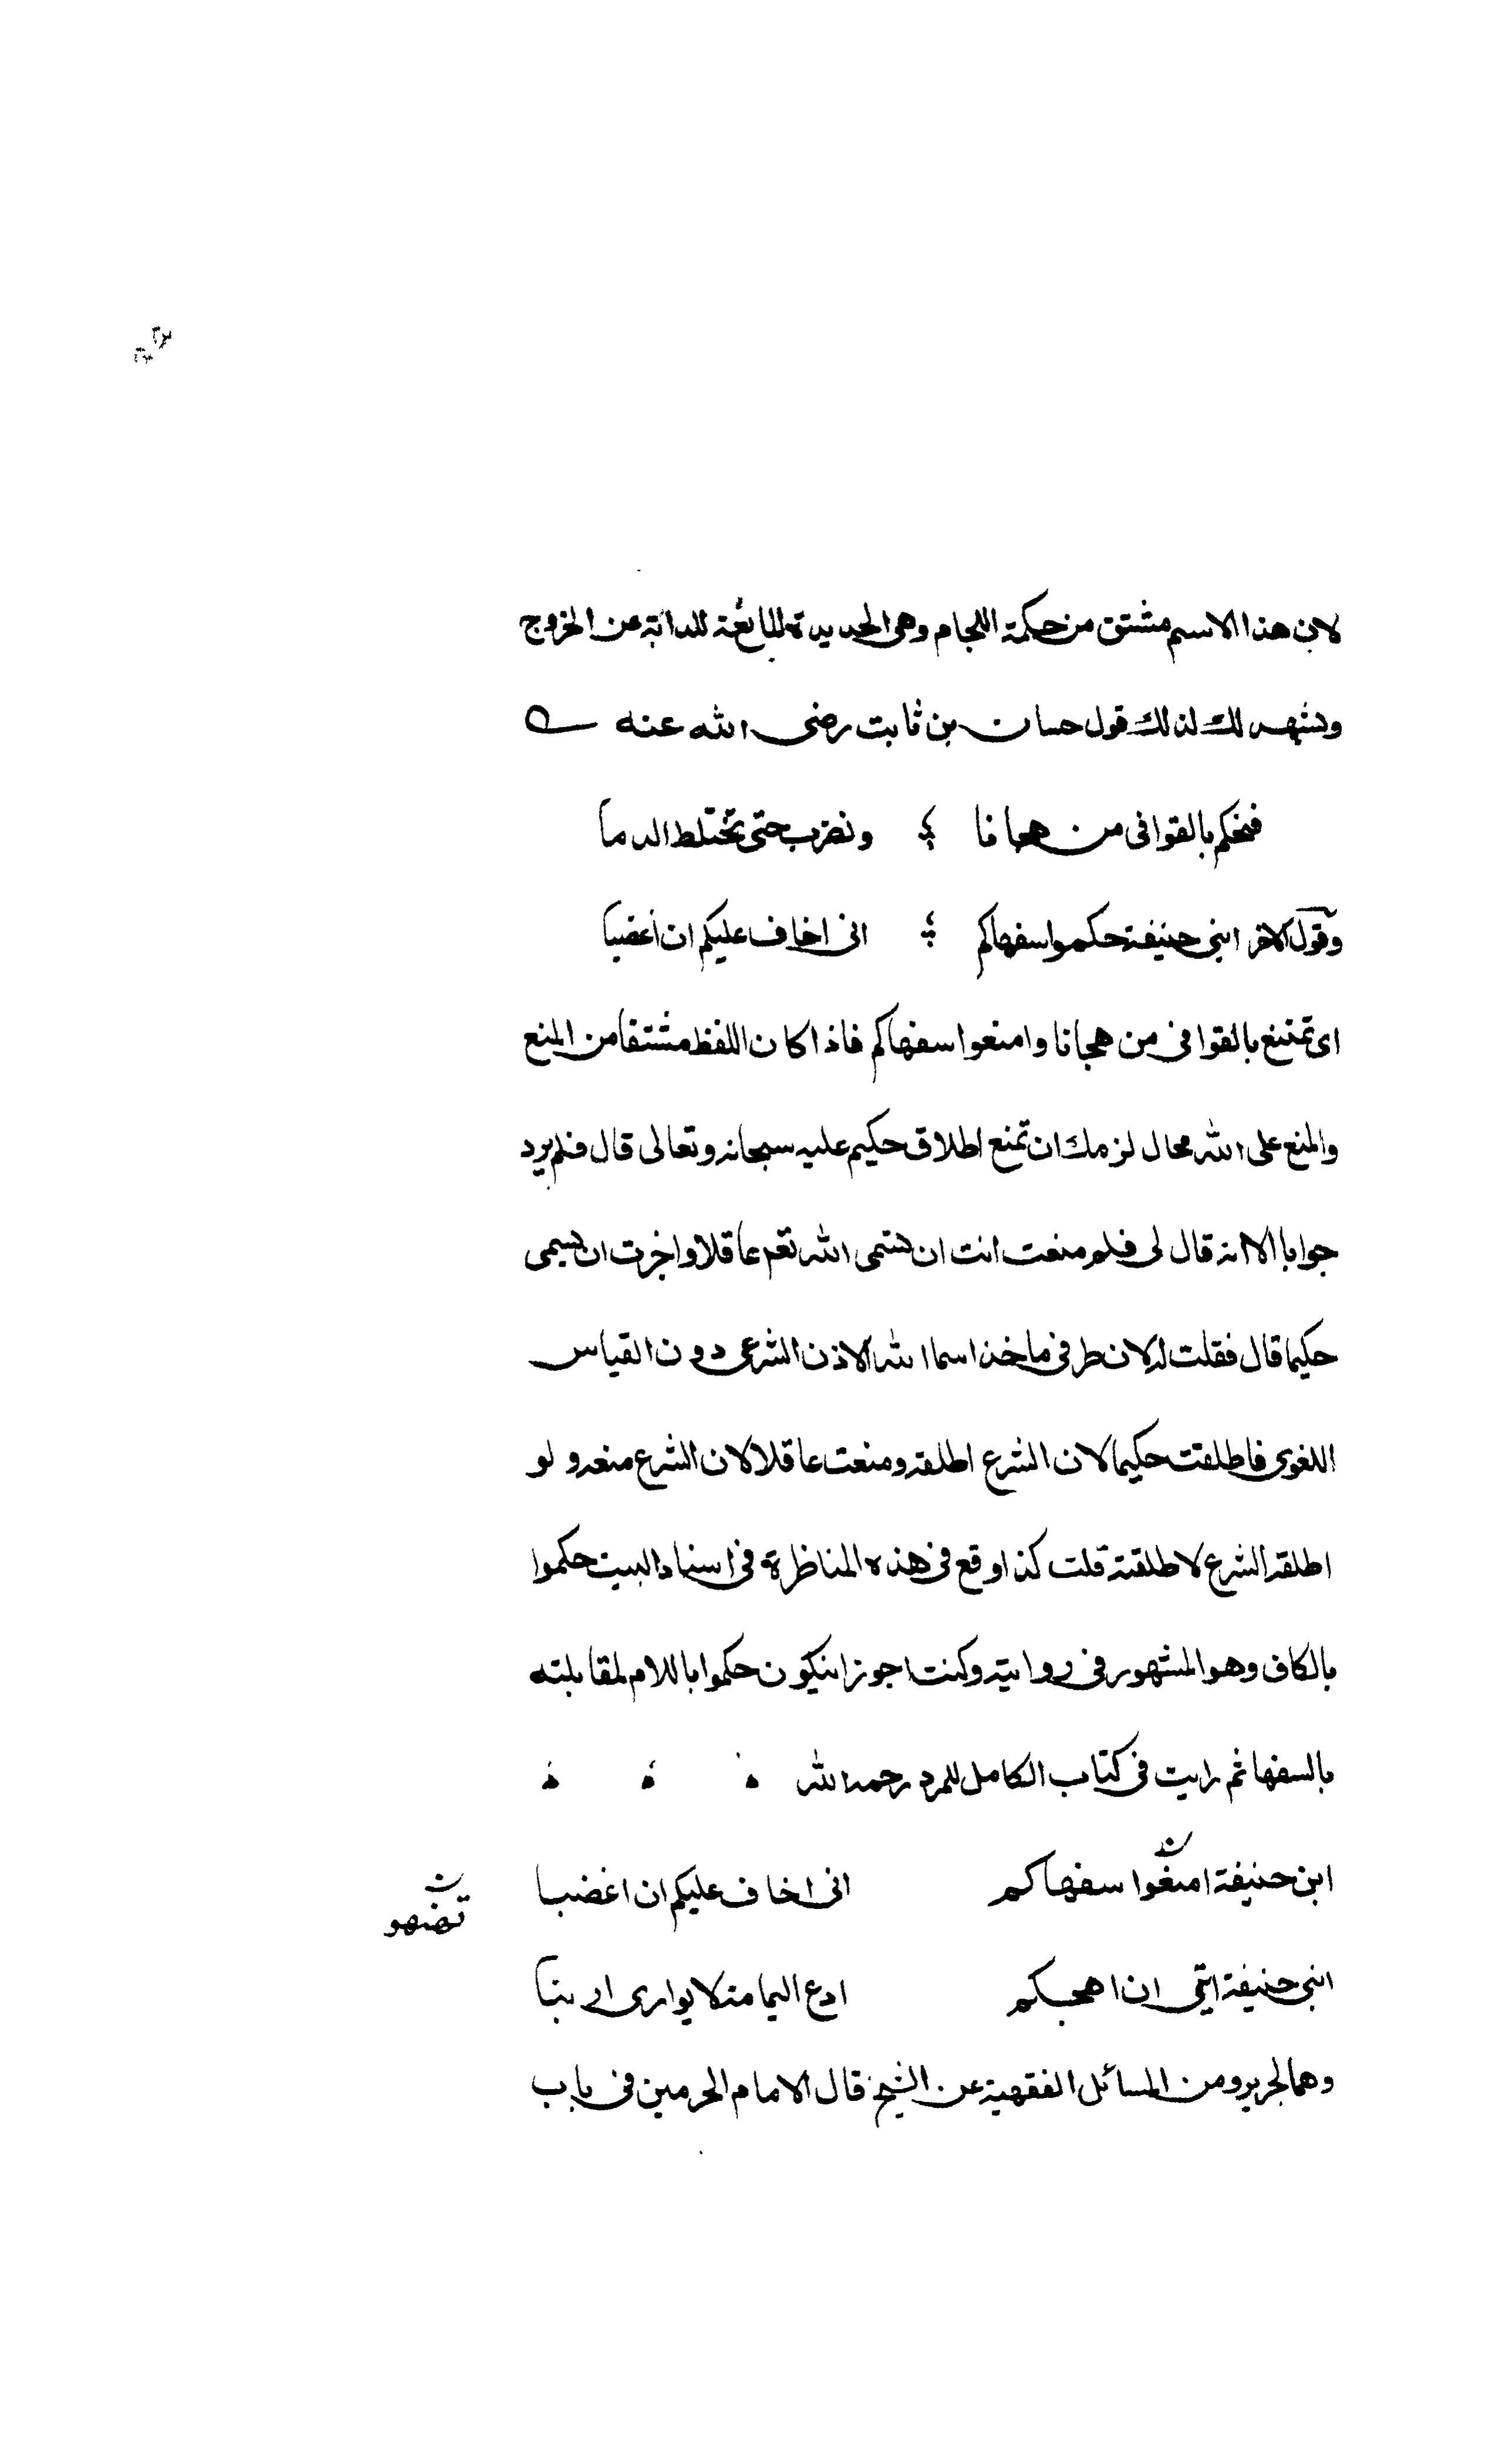 لان هذا الاسم مشتق من حكمة اللجام وهى الحديدة المانعة للدابة عن الخروج
ويشهد لك لذلك قول حسان بن ثابت رضى الله عنه
فنحكم بالقوافى من هجانا ونضرب حتى تختلط الدما
وقول الاخر ابنى حنيفة حكموا سفهاكم انى اخاف عليكم ان اغضبا
اى تمنع بالقوافى من هجانا وامنعوا سفهاكم فاذا كان اللفظ مشتقا من المنع
والمنع على الله محال لزمك ان تمنع اطلاق حكيم عليه سبحانه وتعالى قال فلم يرد
جوابا الا انه قال لى فلم منعت انت ان يسمى الله تعم عاقلا واجزت ان يسمى
حكيما قال فقلت له لان طرفى ماخذ اسما الله الاذن الشرعى دون القياس
اللغوى فاطلقت حكيما لان الشرع اطلقه ومنعت عاقلا لان الشرع منعه ولو
اطلقه الشرع لاطلقته قلت كذا وقع فى هذه المناظرة فى اسناد البيت حكموا
بالكاف وهو المشهور فى روايته وكنت اجوز انيكون حكموا باللام لمقابلته
بالسفها ثم رايت فى كتاب الكامل للمبرد رحمه الله
ابن حنيفة امنعوا سفهاكم انى اخاف عليكم ان اغضبا
ابنى حنيفة اننى ان اهجكم ادع اليمامة لا يوارى ارنبا
وهما لجرير ومن المسائل الفقهية عن الشيخ قال الامام الحرمين فى باب